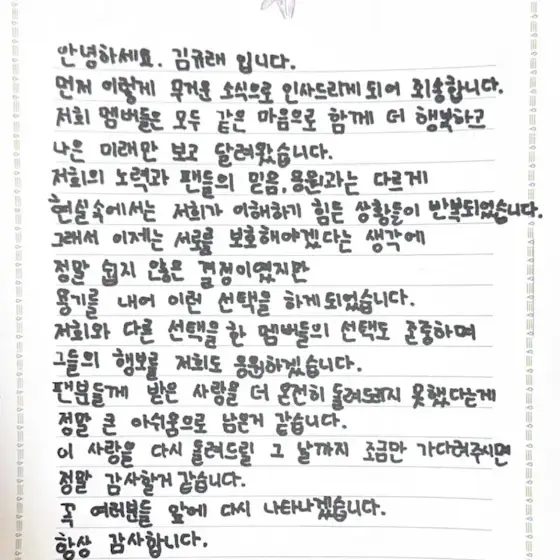 안녕하세요. 김규래 입니다.
먼저 이렇게 무거운 소식으로 인사드리게 되어 죄송합니다.
저희 멤버들은 모두 같은 마음으로 함께 더 행복하고
나은 미래만 보고 달려왔습니다.
저희의 노력과 팬들의 믿음, 응원과는 다르게
현실속에서는 저희가 이해하기 힘든 상황들이 반복되었습니다.
그래서 이제는 서로를 보호해야겠다는 생각에
정말 쉽지 않은 결정이였지만
용기를 내어 이런 선택을 하게 되었습니다.
저희와 다른 선택을 한 멤버들의 선택도 존중하며
그들의 행보를 저희도 응원하겠습니다.
팬분들께 받은 사랑을 더 온전히 돌려드리지 못했다는게
정말 큰 아쉬움으로 남은거 같습니다.
이 사랑을 다시 돌려드릴 그 날까지 조금만 기다려주시면
정말 감사할거 같습니다.
꼭 여러분들 앞에 다시 나타나겠습니다.
항상 감사합니다.